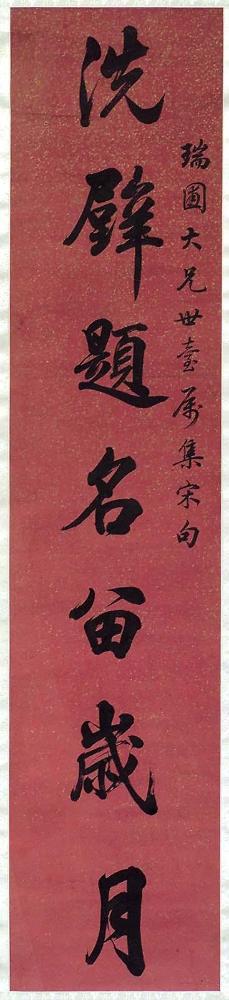 瑞圖大兄世臺属集宋句
洗壁題名留歲月